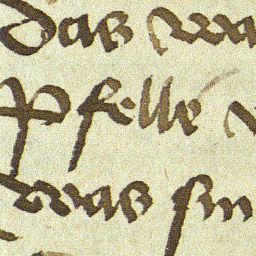 das wa
pfelle
was sin